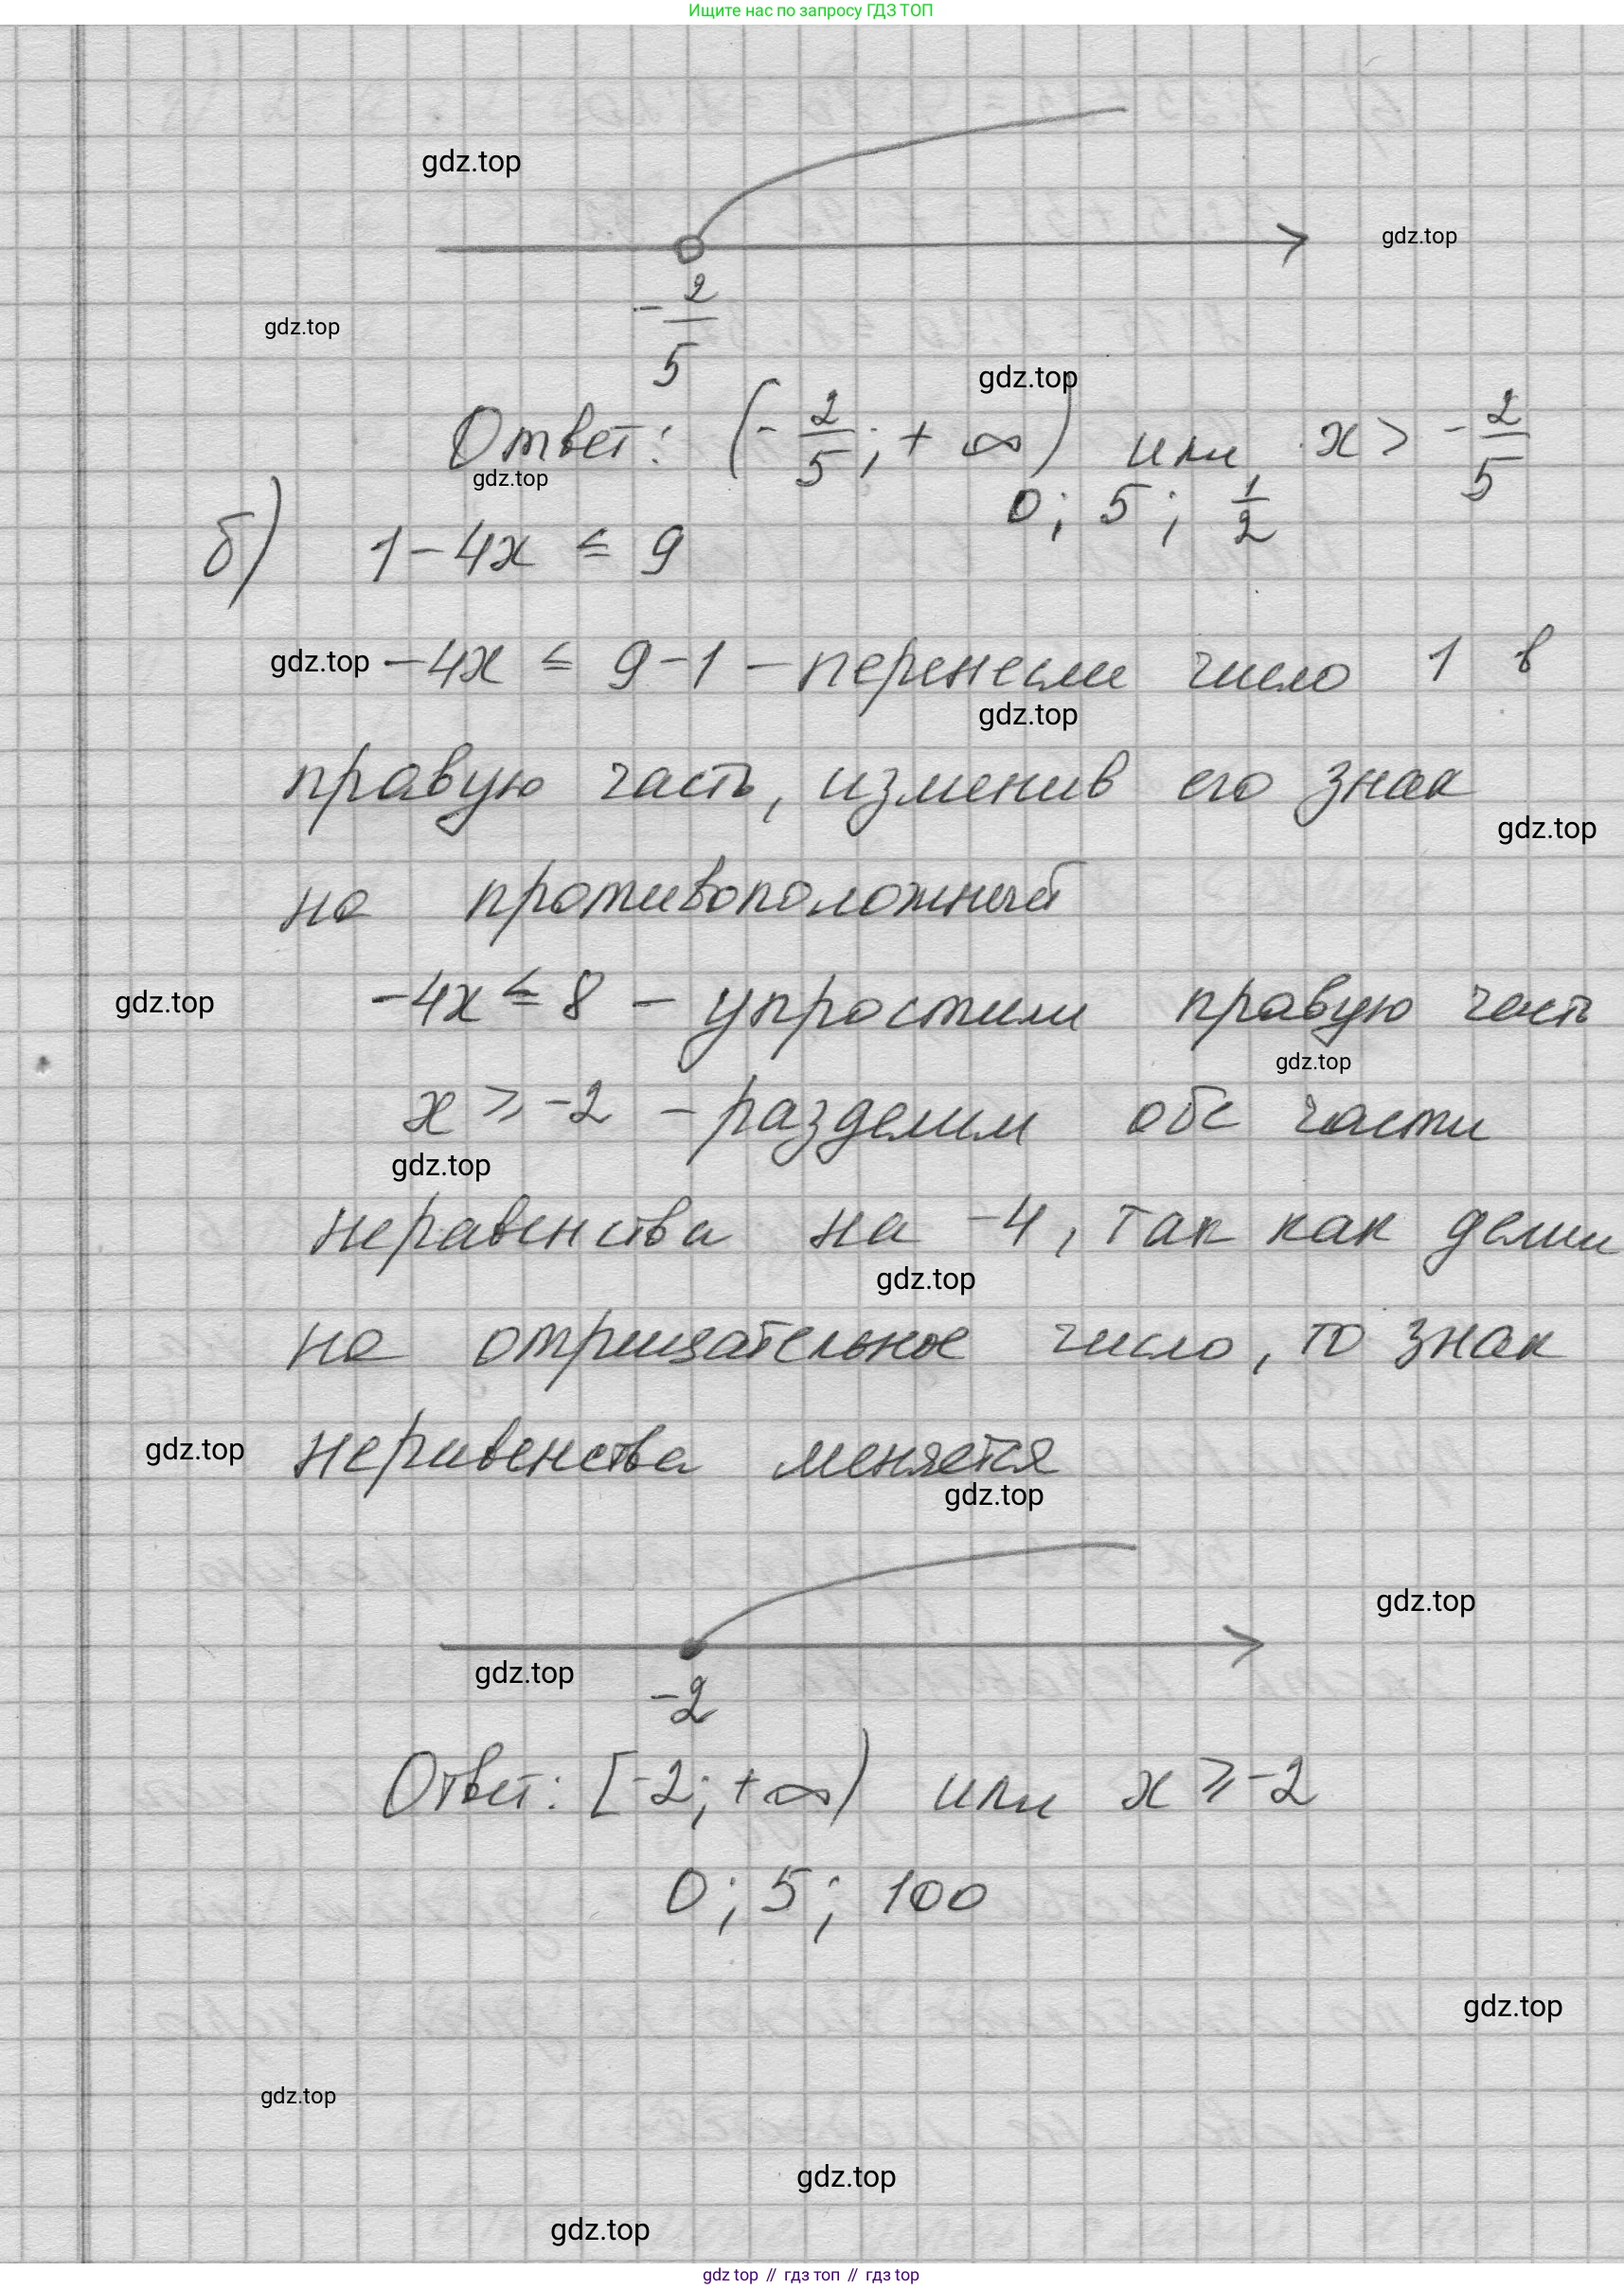 Ищите нас по запросу ГДЗ ТОП
gdz.top
gdz.top
-2/5
gdz.top
gdz.top
Ответ: (-2/5; +∞) или x > -2/5
gdz.top
0; 5; 1/2
б) 1-4x ≤ 9
gdz.top -4x ≤ 9-1 – перенесли число 1 в
gdz.top
правую часть, изменив его знак
gdz.top
на противоположный
gdz.top -4x ≤ 8 – упростили правую часть
gdz.top
x ≥ -2 – разделим обе части
gdz.top
неравенства на -4, так как делим
gdz.top
на отрицательное число, то знак
gdz.top неравенства меняется
gdz.top
gdz.top
gdz.top
-2
Ответ: [-2; +∞) или x ≥ -2
0; 5; 100
gdz.top
gdz.top
gdz.top
gdz.top
gdz top // гдз топ // гдз top